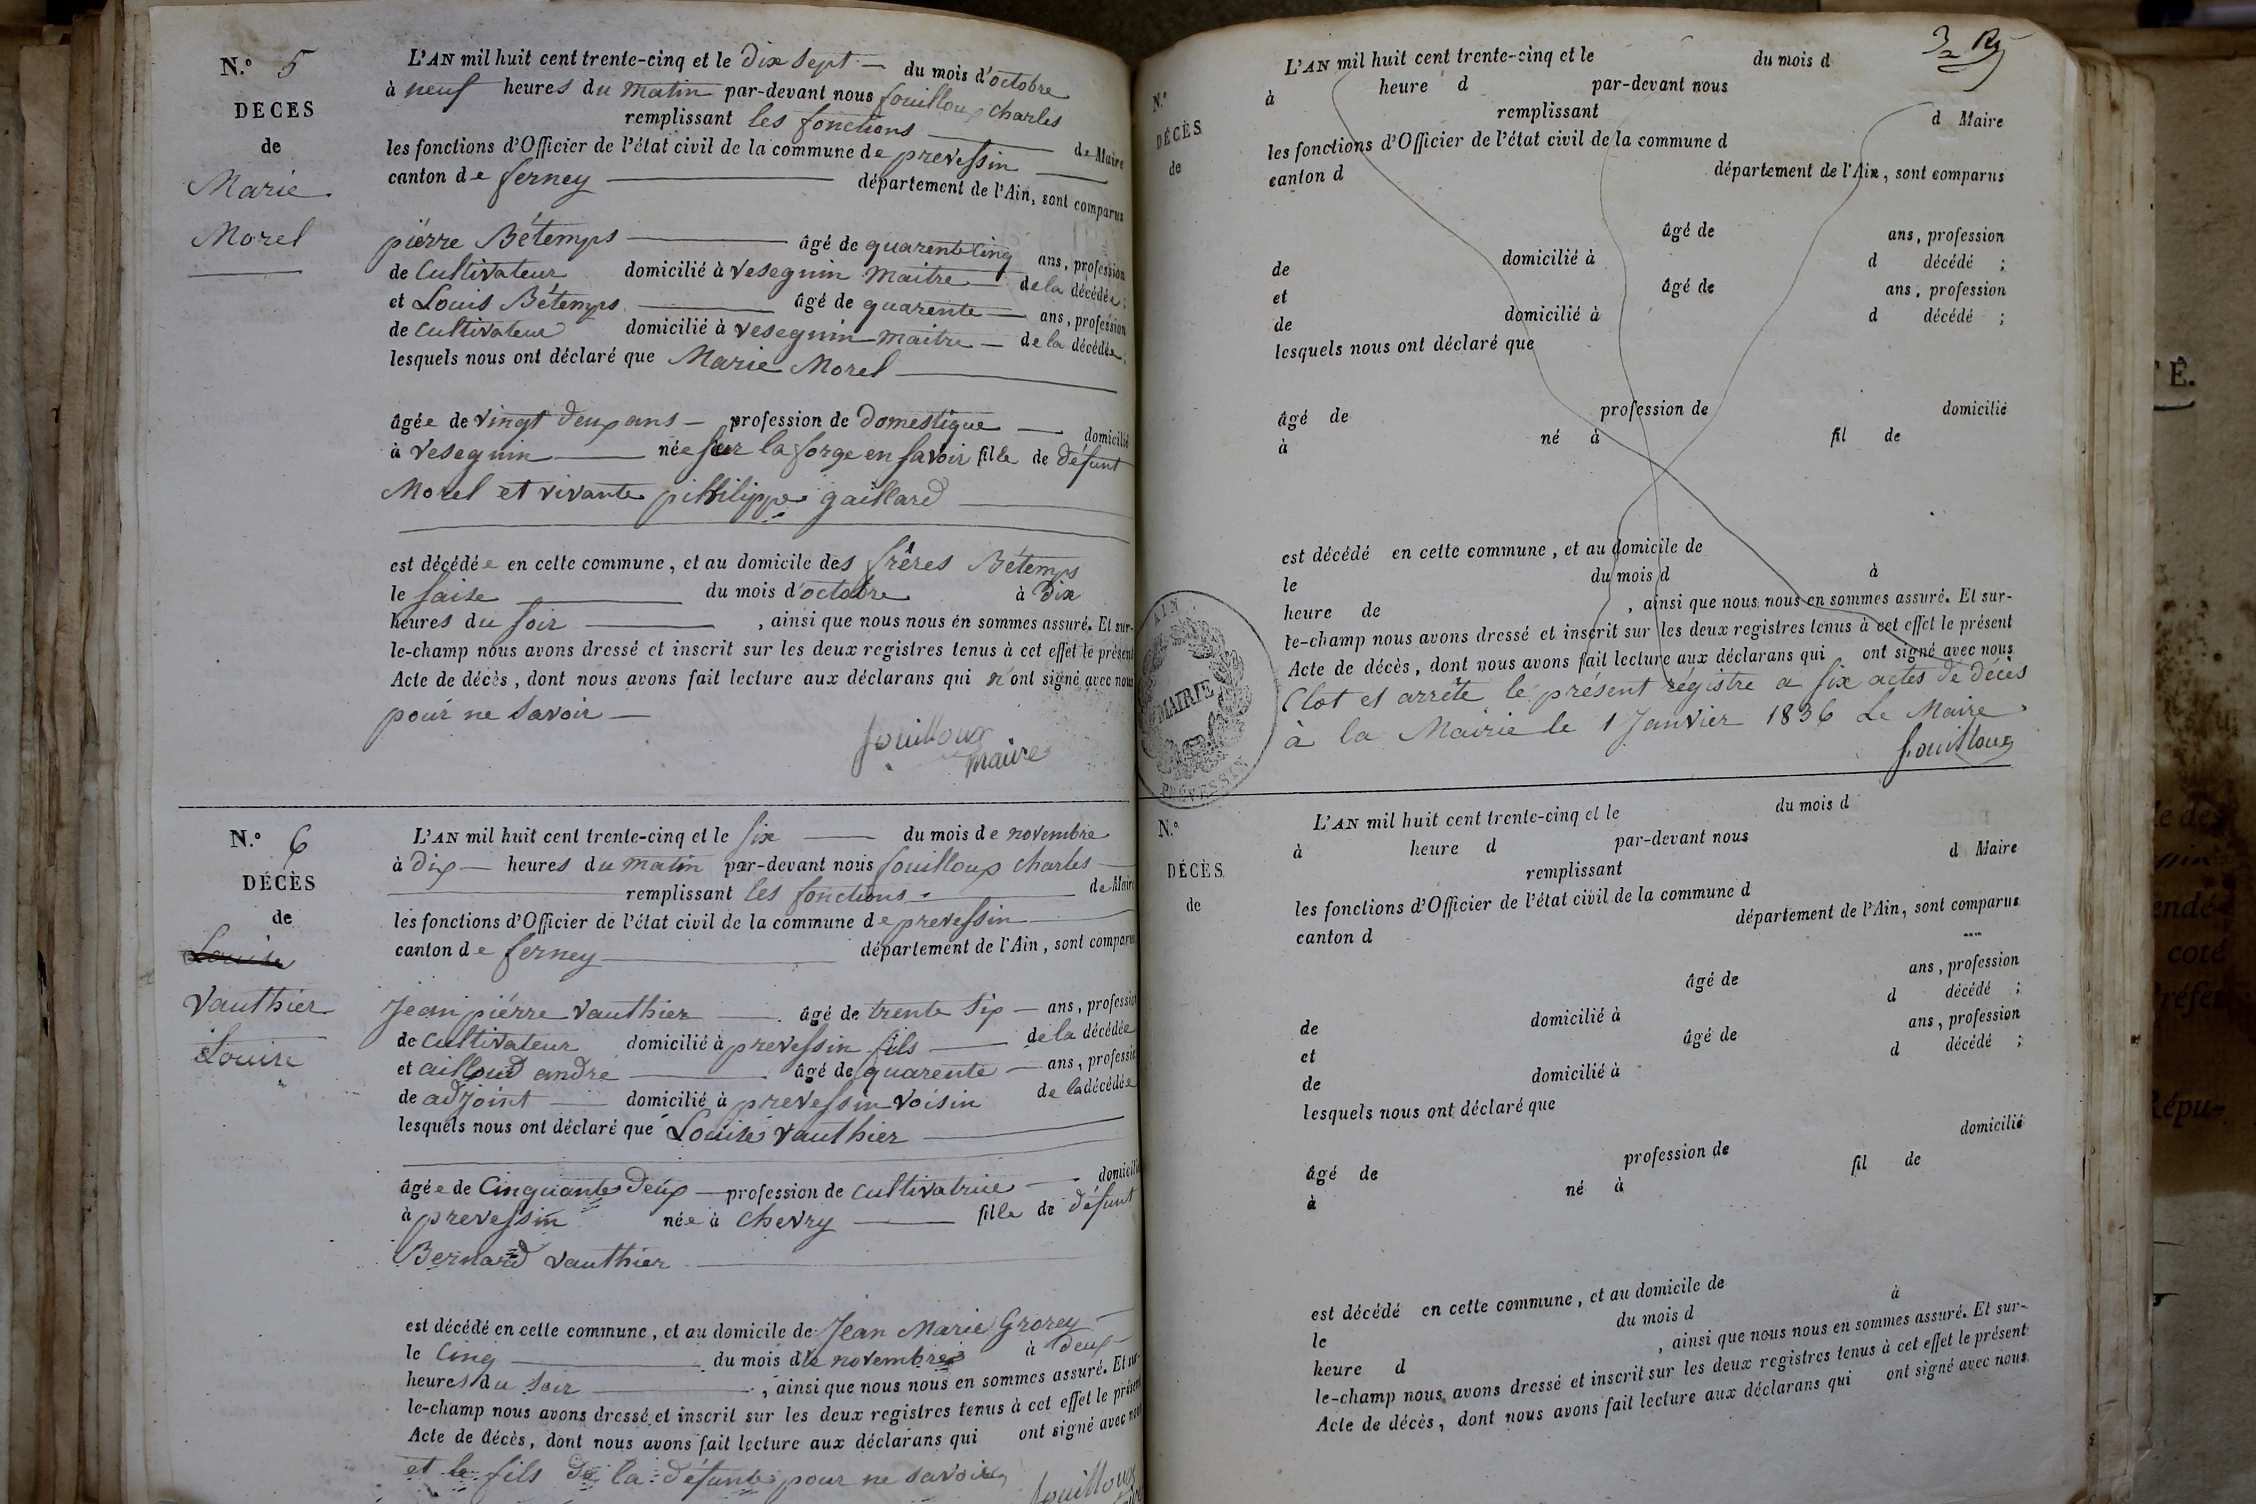 N.° 5
DECES
de
Marie
Morel
L'AN mil huit cent trente-cinq et le dix sept du mois d'octobre
à neuf heures du matin par-devant nous fouilloux Charles
remplissant les fonctions de Maire
les fonctions d'Officier de l'état civil de la commune de prevessin
canton de ferney département de l'Ain, sont comparus
piérre Bétemps âgé de quarente cinq ans, profession
de Cultivateur domicilié à vesegnin maitre de la décédée;
et Louis Bétemps âgé de quarente ans, profession
de cultivateur domicilié à vesegnin maitre de la décédée;
lesquels nous ont déclaré que Marie Morel
âgée de vingt deux ans profession de domestique domicilié
à vesegnin née sur la forge en savoir fille de défunt
Morel et vivante pithilippe gaillard
est décédée en cette commune, et au domicile des frêres Bétemps
le saise du mois d'octobre à Dix
heures du soir , ainsi que nous nous en sommes assuré. Et sur-
le-champ nous avons dressé et inscrit sur les deux registres tenus à cet effet le présent
Acte de décès, dont nous avons fait lecture aux déclarans qui n'ont signé avec nous
pour ne savoir
fouilloux
maire
N.° 6
DÉCÈS
de
Louise
vauthier
Louise
L'AN mil huit cent trente-cinq et le six du mois de novembre
à dix heures du matin par-devant nous fouilloux charles
remplissant les fonctions de Maire
les fonctions d'Officier de l'état civil de la commune de prevessin
canton de ferney département de l'Ain, sont comparus
Jean piérre vauthier âgé de trente six ans, profession
de Cultivateur domicilié à prevessin fils de la décédée
etailloud andré âgé de quarente ans, profession
de adjoint domicilié à prevessin voisin de la décédée
lesquels nous ont déclaré que Louise vauthier
âgée de Cinquante deux profession de cultivatrice domicilié
à prevessin née à chevry fille de défunt
Bernard vauthier
est décédé en cette commune, et au domicile de Jean Marie Grorey
le cinq du mois de novembre à deux
heures du soir , ainsi que nous nous en sommes assuré. Et sur-
le-champ nous avons dressé et inscrit sur les deux registres tenus à cet effet le présent
Acte de décès, dont nous avons fait lecture aux déclarans qui ont signé avec nous
et le fils de la défunte pour ne savoir
fouilloux
N.°
DÉCÈS
de
L'AN mil huit cent trente-cinq et le du mois d
à heure d par-devant nous
remplissant d Maire
les fonctions d'Officier de l'état civil de la commune d
canton d département de l'Ain, sont comparus
âgé de ans, profession
de domicilié à d décédé ;
et âgé de ans, profession
de domicilié à d décédé ;
lesquels nous ont déclaré que
âgé de profession de domicilié
à né à fil de
est décédé en cette commune, et au domicile de
le du mois d à
heure de , ainsi que nous nous en sommes assuré. Et sur-
le-champ nous avons dressé et inscrit sur les deux registres tenus à cet effet le présent
Acte de décès, dont nous avons fait lecture aux déclarans qui ont signé avec nous
Clot et arrête le présent régistre a six actes de décès
à la Mairie le 1 Janvier 1836 Le Maire
fouilloux
AIN
MAIRIE
PRÉVESSIN
N.°
DÉCÈS
de
L'AN mil huit cent trente-cinq et le du mois d
à heure d par-devant nous
remplissant d Maire
les fonctions d'Officier de l'état civil de la commune d
canton d département de l'Ain, sont comparus
âgé de ans, profession
de domicilié à d décédé ;
et âgé de ans, profession
de domicilié à d décédé ;
lesquels nous ont déclaré que
âgé de profession de domicilié
à né à fil de
est décédé en cette commune, et au domicile de
le du mois d à
heure d , ainsi que nous nous en sommes assuré. Et sur-
le-champ nous avons dressé et inscrit sur les deux registres tenus à cet effet le présent
Acte de décès, dont nous avons fait lecture aux déclarans qui ont signé avec nous